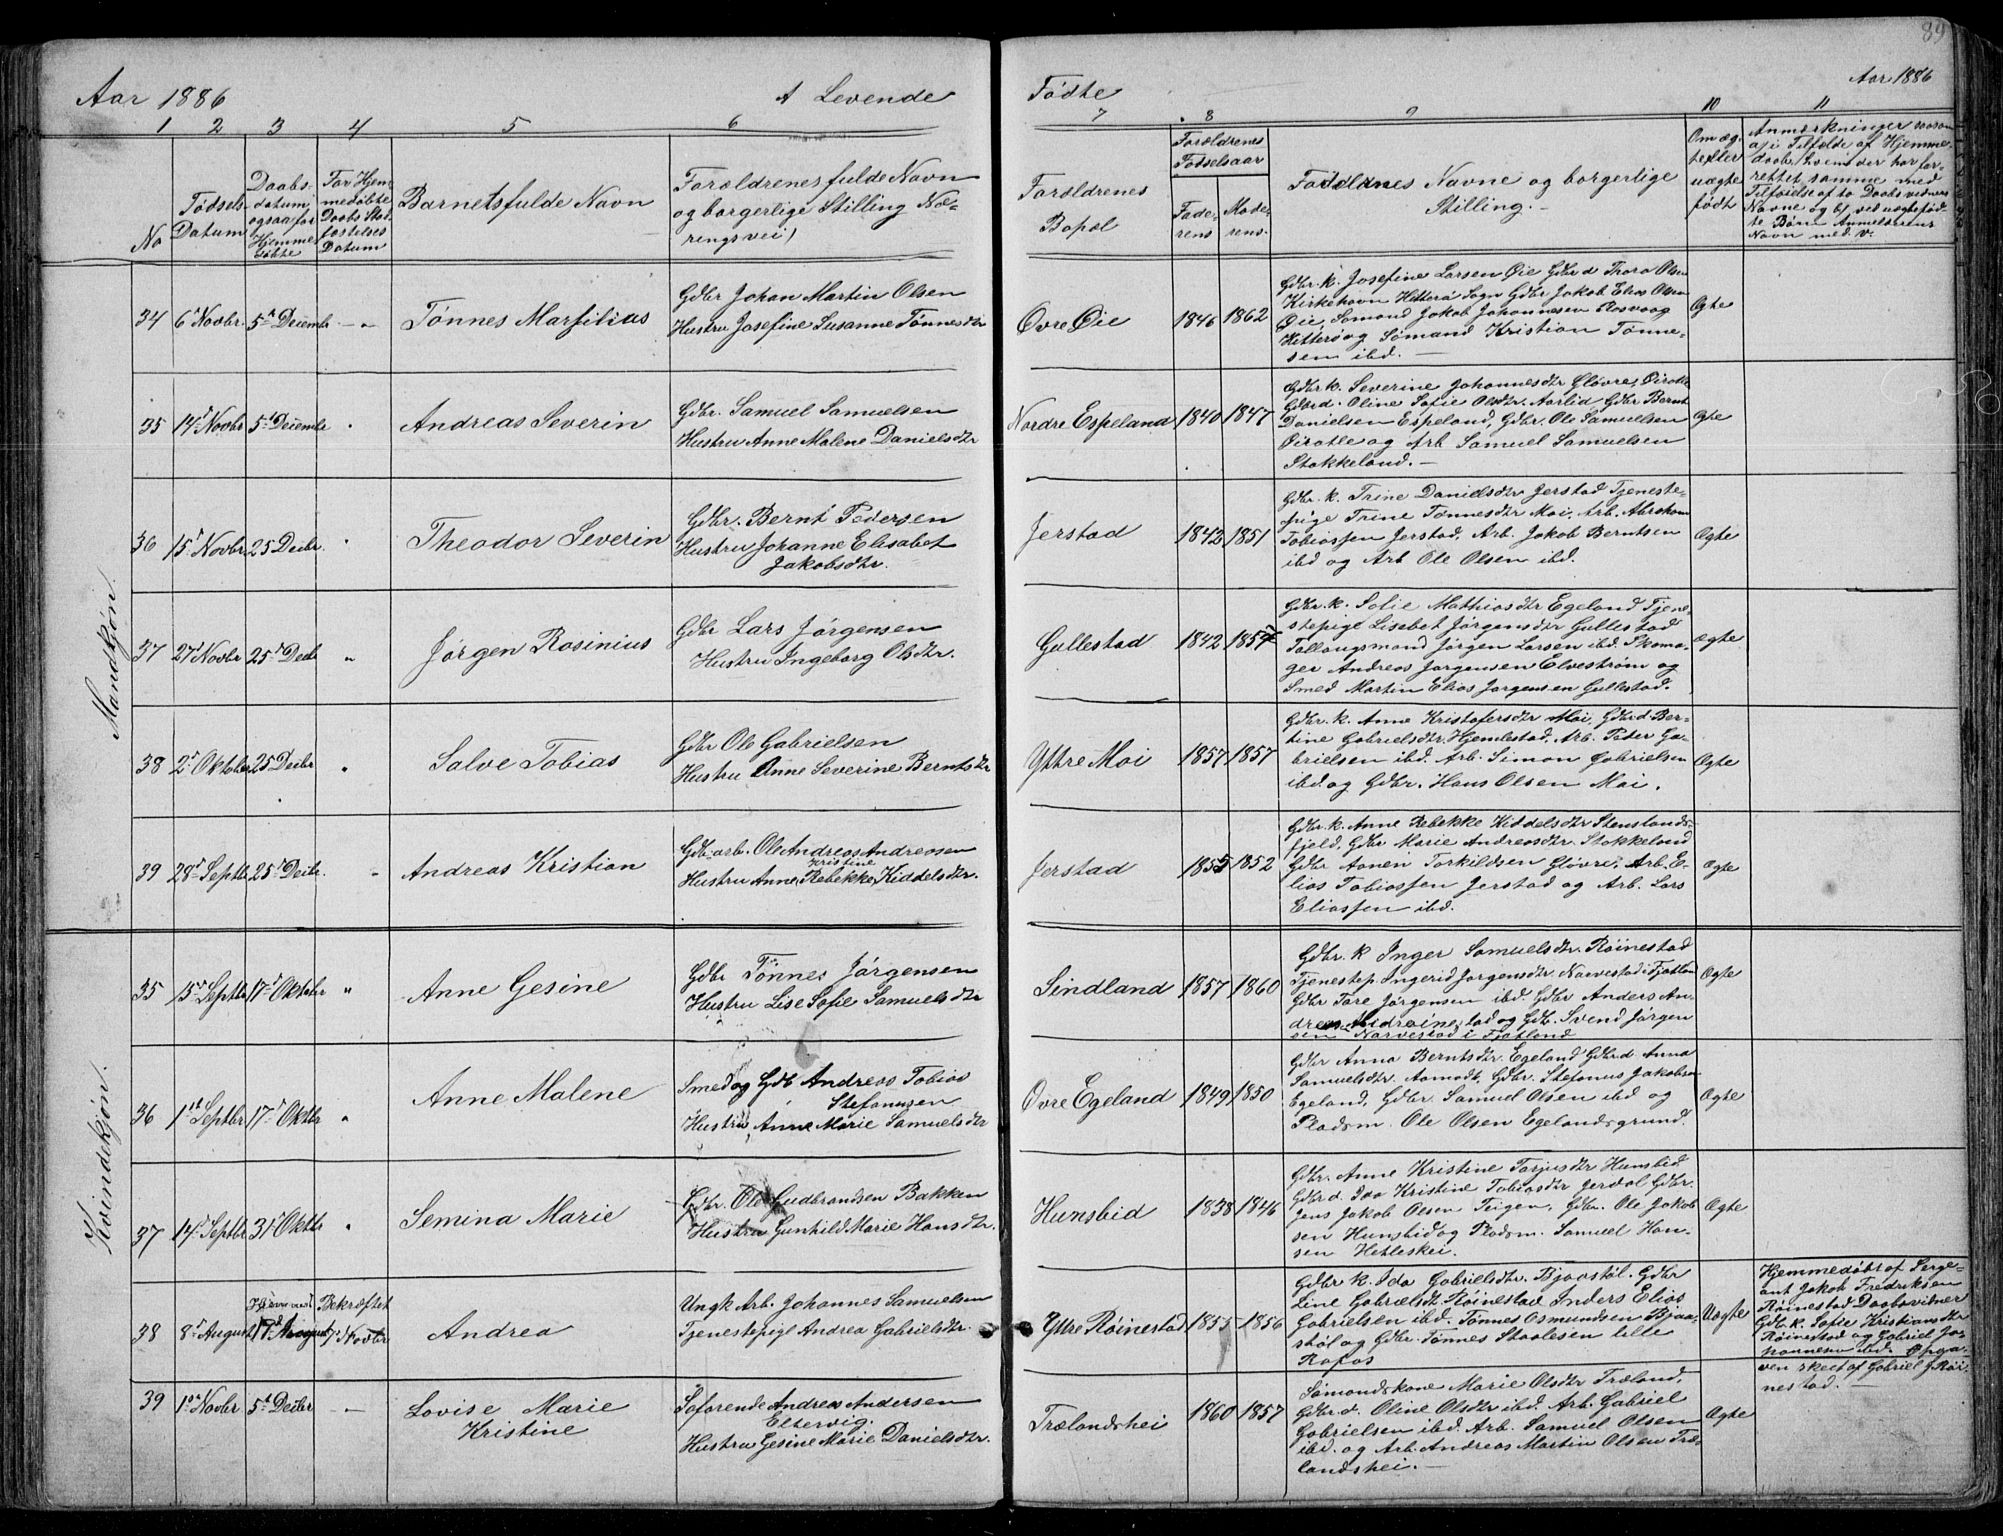 89
Aar 1886
A Levende
Fødte
Aar 1886
1 2 3 4 5 6
7 8 9 10 11
No
Fødsels-
Datum
Daabs-
datum
ogsaa for
Hjemme
døbte
For Hjem-
medøbte
Daabs Stad-
fæstelses
Datum
Barnets fulde Navn
Forældrenes fulde Navn
og borgerlige Stilling Næ-
ringsvei)
Forældrenes
Bopæl
Forældrenes
Fødselsaar
Fade-
rens
Mode-
rens.
Faddernes Navne og borgerlige
Stilling.
Om æg-
te eller
uægte
født
Anmærkninger saasom
a) i Tilfælde af Hjemme-
daab, hvem der har for-
rettet samme med
Tilføielse af to Daabsvidners
Navne og b) ved uægtefød-
te Børn Anmelderens
Navn med. v.
Mandkjøn.
34 6' Novbr. 5te Decembr — „
Tønnes Marsilias
Gdbr Johan Martin Olsen
Hustru Josefine Susanne Tønnesdtr
Øvre Øie
1846 1862
Gdbr. k. Josefine Larsen Øie Gdbr d Thora Olsen
Kirkehavn Hitterø Sogn Gdbr Jakob Elias Olsen
Øie, Sømand Jakob Johannesen Rosvaag
Hitterø og Sømand Kristian Tønne-
sen ibd. —
Ægte
35 14' Novbr 5te Decembr
Andreas Severin
Gdbr. Samuel Samuelsen
Hustru Anne Malene Danielsdtr
Nordre Espeland
1840 1847
Gdbr k. Severine Johannesdtr Gløvre,
Gdbr d. Oline Sofie Olsdtr. Aarlid Gdbr Bernt
Danielsen Espeland, Gdbr. Ole Samuelsen
og Arb Samuel Samuelsen
Stakkeland. —
Ægte
36 15' Novbr 25 Decbr.
Theodor Severin
Gdbr. Bernt Pedersen
Hustru Johanne Elisabet
Jakobsdtr.
Jerstad
1842 1851
Gdbr. k. Trine Danielsdtr Jerstad Tjeneste-
pige Trine Tønnesdtr Moi, Arb. Abraham
Tobiassen Jerstad, Arb. Jakob Berntsen
ibd og Arb Ole Olsen ibd.
Ægte
37 27' Novbr 25' Decbr „
Jørgen Rosinius
Gdbr Lars Jørgensen
Hustru Ingeborg Olsdtr.
Gullestad
1842 1857
Gdbr. k. Sofie Mathiasdtr Egeland Tjene-
stepige Lisebet Jørgensdtr Gullestad
Jørgen Larsen ibd. Skoma-
ger Andreas Jørgensen Elvestrøm og
Smed Martin Elias Jørgensen Gullestad.
ægte
38 2' Oktober 25 Decbr „
Salve Tobias
Gdbr Ole Gabrielsen
Hustru Anne Severine Berntsdtr
Yttre Moi
1857 1857
Gdbr. k. Anne Kristofersdtr Moi, Gdbr d. Ber-
tine Gabrielsdtr Hjemlestad, Arb. Peder Ga-
brielsen ibd. Arb. Simon Gabrielsen
ibd. og Gdbr. Hans Olsen Moi.
Ægte
39 28' Septbr 25' Decbr. „
Andreas Kristian
Gdb. arb. Ole Andreas Andreasen
Kristine
Hustru Anne Rebekke Kiddelsdtr.
Jerstad
1855 1852
Gdbr. k. Anne Rebekke Kiddelsdtr Stenslands-
fjeld, Gdbr Marie Andreasdtr. Stakkeland
Gdbr Aanen Torkildsen Gløvre, Arb. E-
lias Tobiassen Jerstad og Arb. Lars
Eliassen ibd.
Ægte
Kvindekjøn.
35 15' Septbr 17' Oktobr „
Anne Gesine
Gdbr Tønnes Jørgensen
Hustru Lise Sofie Samuelsdtr
Sindland
1857 1860
Gdbr. k Inger Samuelsdtr. Røinestad
Tjenestep. Ingerid Jørgensdtr. Narvestad i Fjotland
Gdbr Tore Jørgensen ibd. Gdbr Anders An-
dreas Midrøinestad og Gdb. Svend Jørgen
sen Narvestad i Fjotland
Ægte
36 1ste Septbr 17' Oktbr „
Anne Malene
Smed og Gdb Andreas Tobias
Stefanusen
Hustru Anne Marie Samuelsdtr
Øvre Egeland
1849 1850
Gdbr Anna Berntsdtr. Egeland Gdbr d Anna
Samuelsdtr. Aamodt, Gdbr. Stefanus Jakobsen
Egeland, Gdbr. Samuel Olsen ibd og
Pladsm. Ole Olsen Egelandsgrund.
Ægte
37 14' Septbr 31' Oktbr „
Semina Marie
Gdbr. Ole Gudbrandsen Bakken
Hustru Gunhild Marie Hansdtr.
Hunsbid
1838 1846
Gdbr. Anne Kristine Tarjusdtr Hunsbid
Gdbr d. Ida Kristine Tobiasdtr Jerdal Gdbr.
Jens Jakob Olsen Teigen, Gdbr. Ole Jakob
sen Hunsbid og Pladsm. Samuel Han-
sen Hetleskei.
Ægte
38 8' August
17' August
Bekræftet
7' Novbr
Andrea
Ungk Arb. Johannes Samuelsen
Tjenestepige Andrea Gabrielsdtr.
Yttre Røinestad
1855 1856
Gdbr k. Ida Gabrielsdtr. Bjaastøl. Gdbr
Line Gabrielsdt. Røinestad Anders Elias
Gabrielsen ibd. Tønnes Osmundsen Bjaa-
støl og Gdbr. Tønnes Staalesen lille
Rafos
Uægte
Hjemmedøbt af Serge-
ant Jakob Fredriksen
Røinestad Daabsvidner
Gdb. k. Sofie Kristiansdtr
Røinestad og Gabriel Jo-
hannesen ibd. Opga-
ven skeet af Gabriel J. Røi-
nestad. —
39 10' Novbr 5te Decbr —
Lovise Marie
Kristine
Søfarende Andreas Andersen
Eltervig.
Hustru Gesine Marie Danielsdtr.
Trælandshei
1860 1857
Sømandskone Marie Olsdtr Træland,
Gdbr d. Oline Olsdtr ibd. Arb. Gabriel
Gabrielsen ibd. Arb. Samuel Olsen
ibd. og Arb. Andreas Martin Olsen Træ-
landshei. —
Ægte